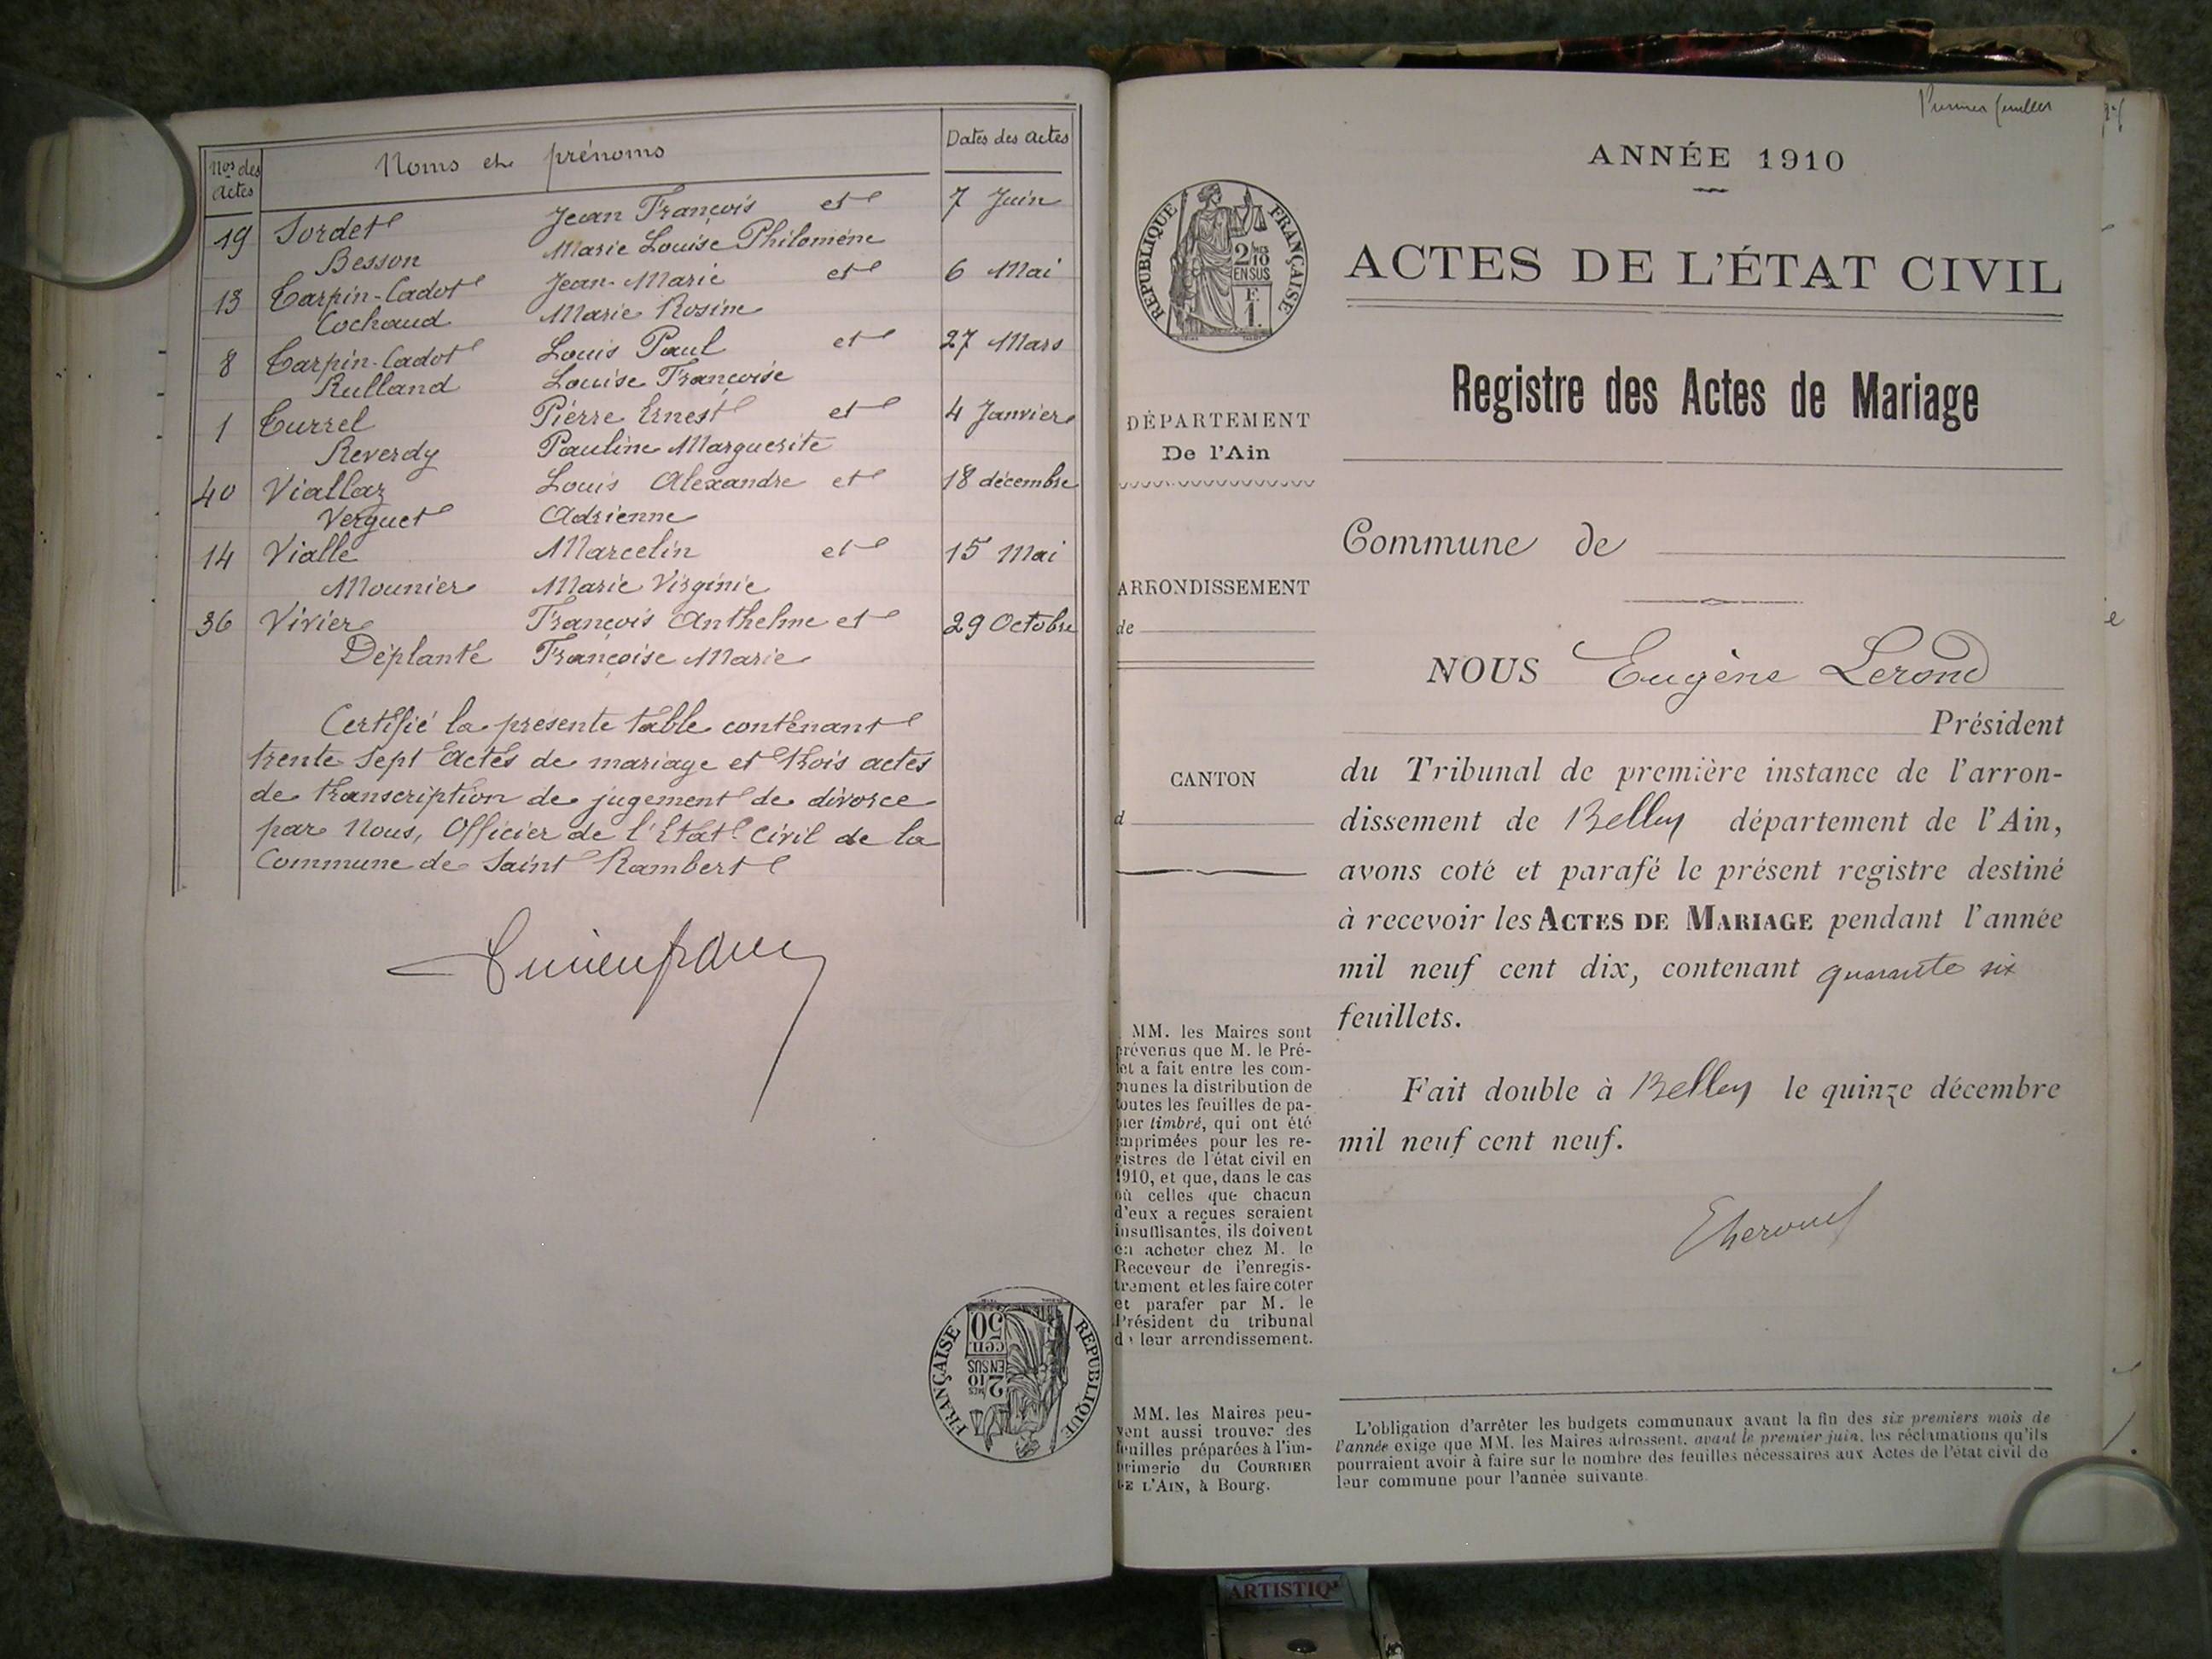 Nos des actes
Noms et prénoms
Dates des actes
19 Sordet Jean François et 7 Juin
Besson Marie Louise Philomène
13 Tarpin-Cadot Jean-Marie et 6 Mai
Cochaud Marie Rosine
8 Tarpin-Cadot Louis Paul et 27 Mars
Rulland Louise Françoise
1 Turrel Pierre Ernest et 4 Janvier
Reverdy Pauline Marguerite
40 Viallaz Louis Alexandre et 18 décembre
Verguet Adrienne
14 Vialle Marcelin et 15 Mai
Mounier Marie Virginie
36 Vivier François Anthelme et 29 Octobre
Déplante Françoise Marie
Certifié la présente table contenant
trente sept actes de mariage et trois actes
de transcription de jugement de divorce
par Nous, Officier de l'Etat Civil de la
Commune de Saint Rambert
RÉPUBLIQUE FRANÇAISE
2/10MES EN SUS
50 CEN.
Premier feuillet
ANNÉE 1910
RÉPUBLIQUE FRANÇAISE
2/10MES EN SUS
F. 1.
ACTES DE L'ÉTAT CIVIL
Registre des Actes de Mariage
DÉPARTEMENT
De l'Ain
ARRONDISSEMENT
de
CANTON
d
MM. les Maires sont
prévenus que M. le Pré-
fet a fait entre les com-
munes la distribution de
toutes les feuilles de pa-
pier timbré, qui ont été
imprimées pour les re-
gistres de l'état civil en
1910, et que, dans le cas
où celles que chacun
d'eux a reçues seraient
insuffisantes, ils doivent
en acheter chez M. le
Receveur de l'enregis-
trement et les faire coter
et parafer par M. le
Président du tribunal
de leur arrondissement.
MM. les Maires peu-
vent aussi trouver des
feuilles préparées à l'im-
primerie du COURRIER
DE L'AIN, à Bourg.
Commune de
NOUS Eugène Lerond
Président
du Tribunal de première instance de l'arron-
dissement de Belley département de l'Ain,
avons coté et parafé le présent registre destiné
à recevoir les ACTES DE MARIAGE pendant l'année
mil neuf cent dix, contenant quarante six
feuillets.
Fait double à Belley le quinze décembre
mil neuf cent neuf.
L'obligation d'arrêter les budgets communaux avant la fin des six premiers mois de
l'année exige que MM. les Maires adressent, avant le premier juin, les réclamations qu'ils
pourraient avoir à faire sur le nombre des feuilles nécessaires aux Actes de l'état civil de
leur commune pour l'année suivante.
ARTISTIQ